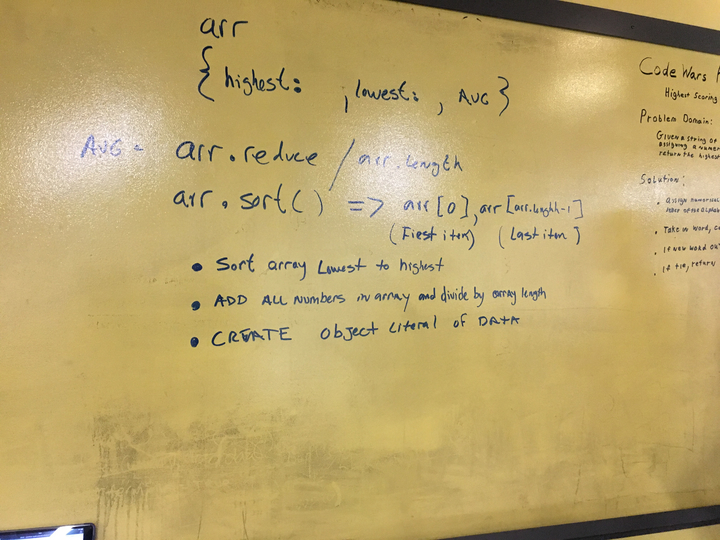 arr
{ highest: , lowest: , AVG }
AVG = arr.reduce / arr.length
arr.sort() => arr[0], arr[arr.lenghh-1]
(First item) (Last item)
• Sort array Lowest to highest
• ADD ALL numbers in array and divide by array length
• CREATE Object Literal of DATA
Code Wars
Highest Scoring
Problem Domain:
Given a string of
assigning a numer
return the highest
Solution:
• Assign numerical
letter of the alphab
• Take in word,
• If new word
• If tie, return